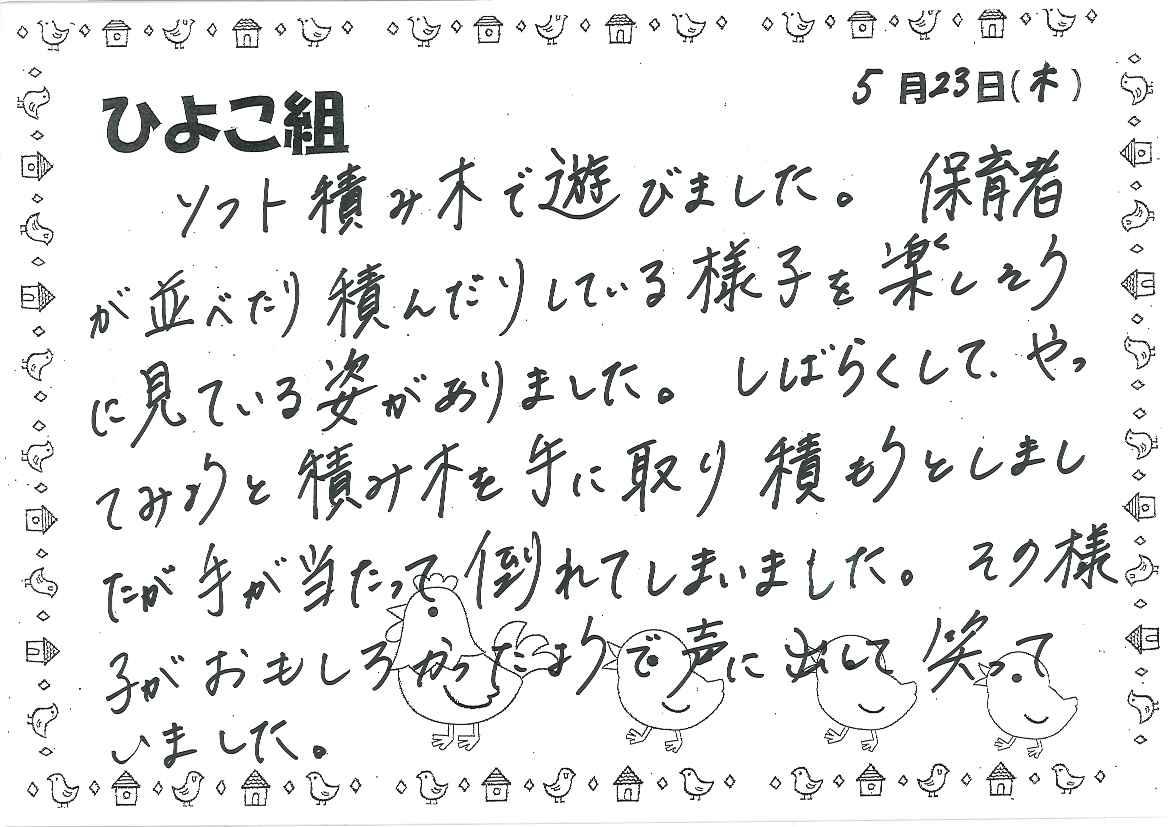 5月23日(木)
ひよこ組
ソフト積み木で遊びました。保育者
が並べたり積んだりしている様子を楽しそう
に見ている姿がありました。しばらくして、やっ
てみようと積み木を手に取り積もうとしまし
たが手が当たって倒れてしまいました。その様
子がおもしろかったようで声に出して笑って
いました。